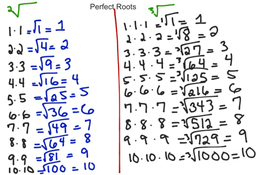 Perfect Roots
²√
1·1=√1=1
2·2=√4=2
3·3=√9=3
4·4=√16=4
5·5=√25=5
6·6=√36=6
7·7=√49=7
8·8=√64=8
9·9=√81=9
10·10=√100=10
³√
1·1·1=³√1=1
2·2·2=³√8=2
3·3·3=³√27=3
4·4·4=³√64=4
5·5·5=³√125=5
6·6·6=³√216=6
7·7·7=³√343=7
8·8·8=³√512=8
9·9·9=³√729=9
10·10·10=³√1000=10